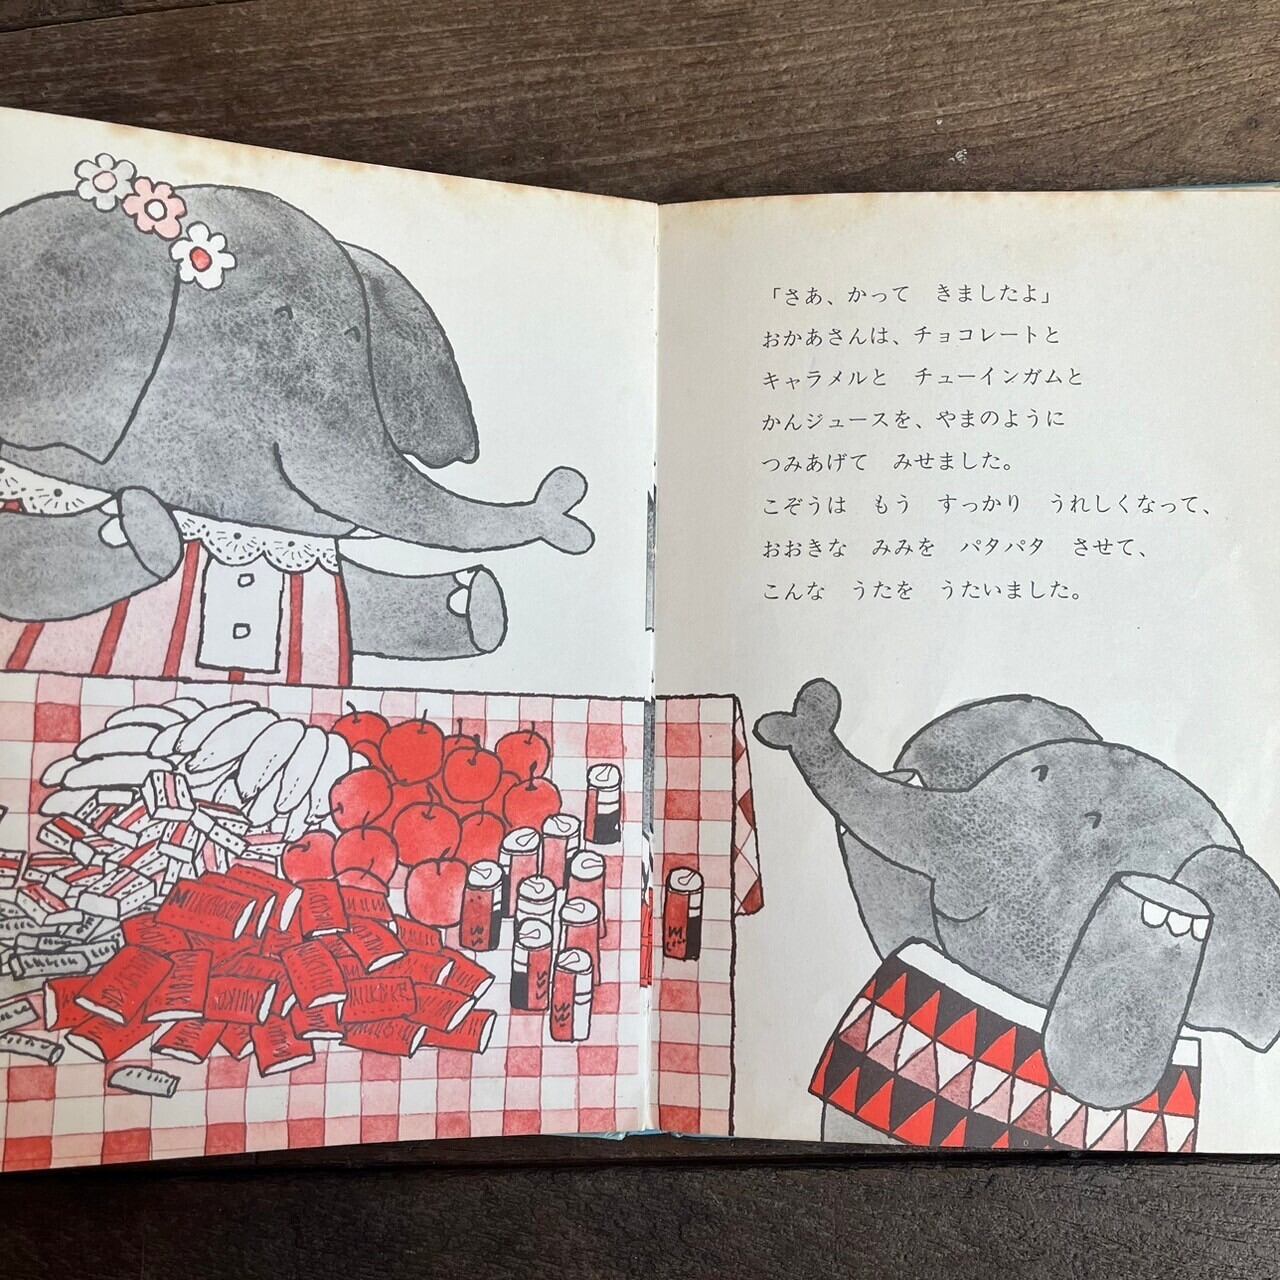 「さあ、かって　きましたよ」
おかあさんは、チョコレートと
キャラメルと　チューインガムと
かんジュースを、やまのように
つみあげて　みせました。
こぞうは　もう　すっかり　うれしくなって、
おおきな　みみを　パタパタ　させて、
こんな　うたを　うたいました。